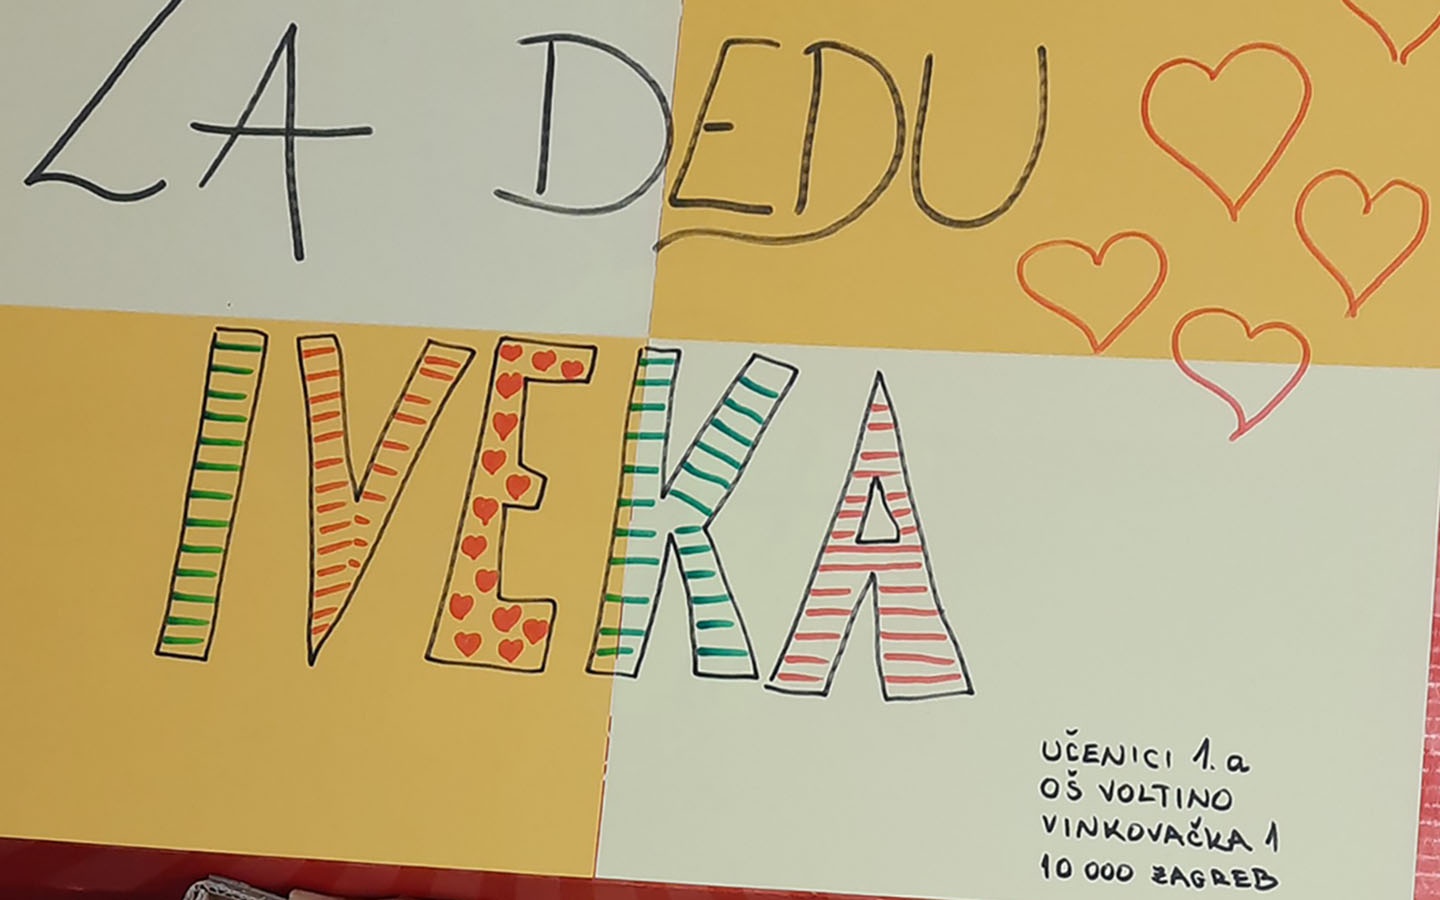 ZA DEDU
IVEKA
UČENICI 1. a
OŠ VOLTINO
VINKOVAČKA 1
10 000 ZAGREB